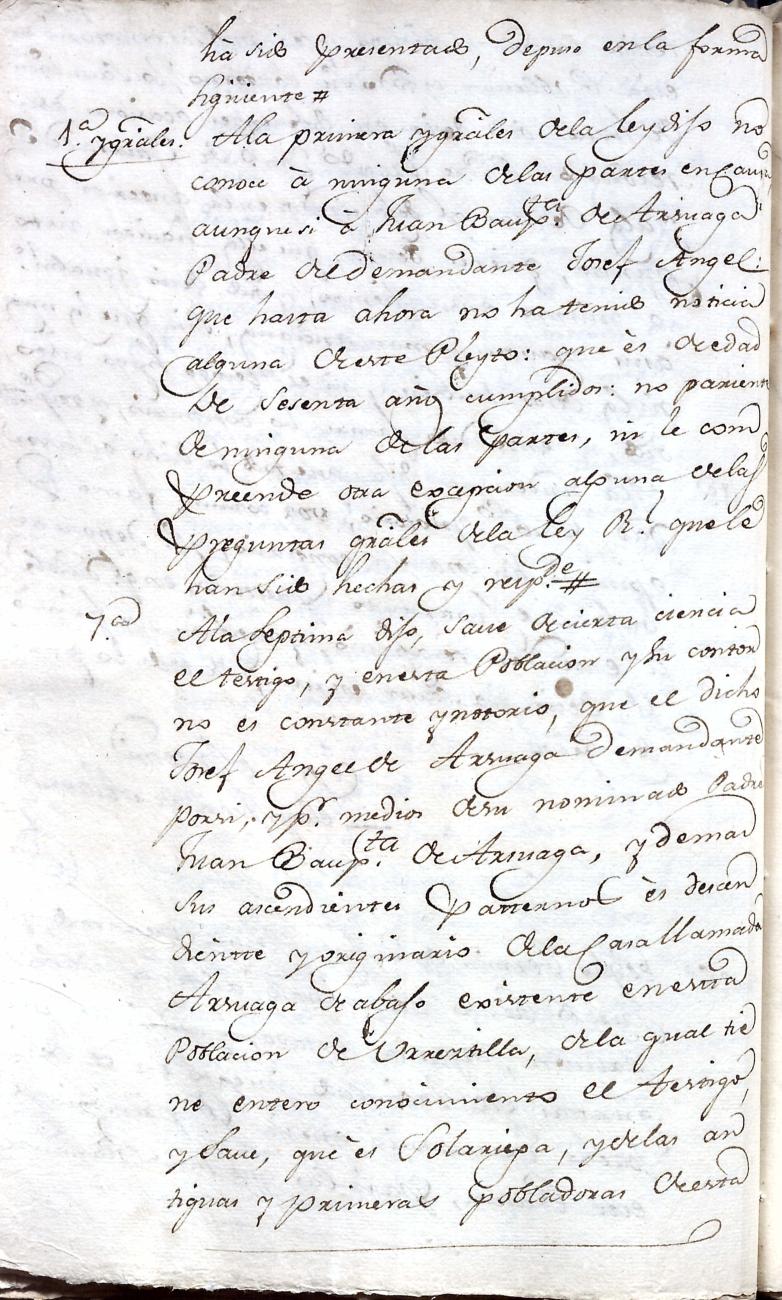 hà sido presentado, depuso en la forma
siguiente #
1.ª y grãles. A la primera y grãles de la ley dijo no
conoce à ninguna de las partes en causa,
aunque si à Juan Baup.ta de Arsuaga
Padre del demandante Josef Angel:
que hasta ahora no ha tenido noticia
alguna de este Pleyto: que ès de edad
de sesenta años cumplidos: no pariente
de ninguna de las partes, ni le com
preende otra excepcion alguna de las
preguntas grãles de la ley R.l que le
han sido hechas y resp.de #
7.ª A la septima dijo, save de cierta ciencia
el testigo, y en esta Poblacion y su contor
no es constante y notorio, que el dicho
Josef Angel de Arsuaga demandante
por si, y p.r medio de su nominado Padre
Juan Baup.ta de Arsuaga, y demas
sus ascendientes patternos ès descen
diente y originario de la Casa llamada
Arsuaga de abajo existente en esta
Poblacion de Urrestilla, de la qual tie
ne entero conocimiento el testigo,
y save, que ès Solariega, y de las an
tiguas y primeras pobladoras de esta